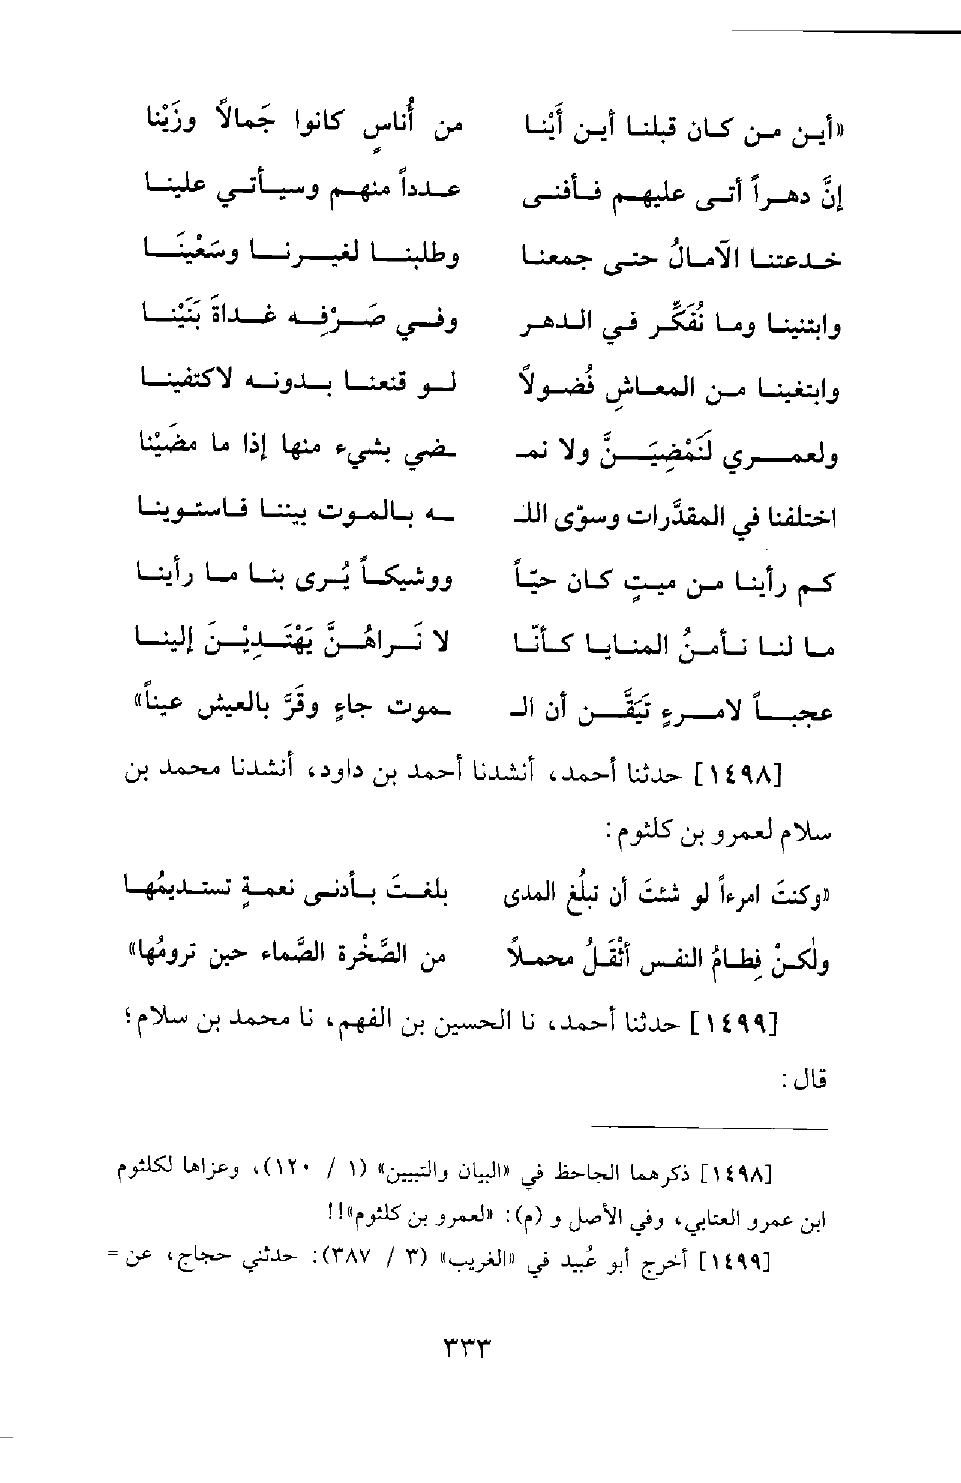 «أين من كان قبلنا أين أَيْنا من أُناسٍ كانوا جَمالاً وزَيْنا
إنَّ دهراً أتى عليهم فأفنى عدداً منهم وسيأتي علينا
خدعتنا الآمالُ حتى جمعنا وطلبنا لغيرنا وسَعْيْنَا
وابتنينا وما نُفَكِّر في الدهر وفي صَرْفِه غداةَ بَنَيْنا
وابتغينا من المعاشِ فُضولاً لو قنعنا بدونه لاكتفينا
ولعمري لَنَمْضِيَنَّ ولا نمـ ـضي بشيء منها إذا ما مضَيْنا
اختلفنا في المقدَّرات وسوّى اللـ ـه بالموت بيننا فاستوينا
كم رأينا من ميتٍ كان حيّاً ووشيكاً يُرى بنا ما رأينا
ما لنا نأمنُ المنايا كأنّا لا نَراهُنَّ يَهْتَدِيْنَ إلينا
عجباً لامرءٍ تيَقَّن أن الـ ـموت جاءٍ وقَرَّ بالعيش عيناً»
[١٤٩٨] حدثنا أحمد، أنشدنا أحمد بن داود، أنشدنا محمد بن
سلام لعمرو بن كلثوم:
«وكنتَ امرءاً لو شئتَ أن تبلُغ المدى بلغتَ بأدنى نعمةٍ تستديمُها
ولكنْ فِطامُ النفس أثْقَلُ محملاً من الصَّخْرة الصَّماء حين ترومُها»
[١٤٩٩] حدثنا أحمد، نا الحسين بن الفهم، نا محمد بن سلام؛
قال:
[١٤٩٨] ذكرهما الجاحظ في «البيان والتبيين» (١ / ١٢٠)، وعزاها لكلثوم
ابن عمرو العتابي، وفي الأصل و (م): «لعمرو بن كلثوم»!!
[١٤٩٩] أخرج أبو عُبيد في «الغريب» (٣ / ٣٨٧): حدثني حجاج، عن =
٣٣٣